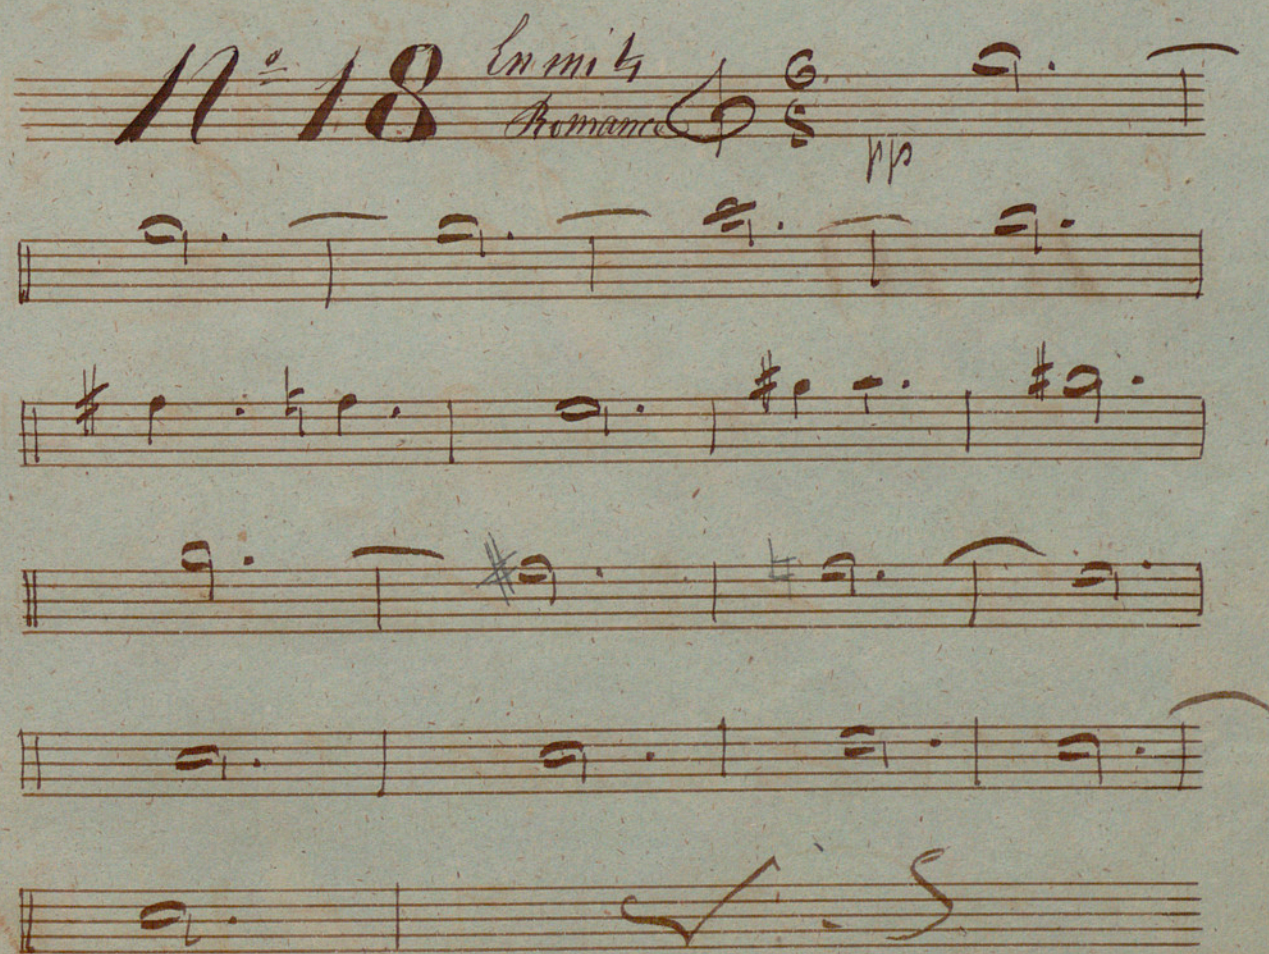 Nº 18 En mi ♮
Romance 6
8
pp